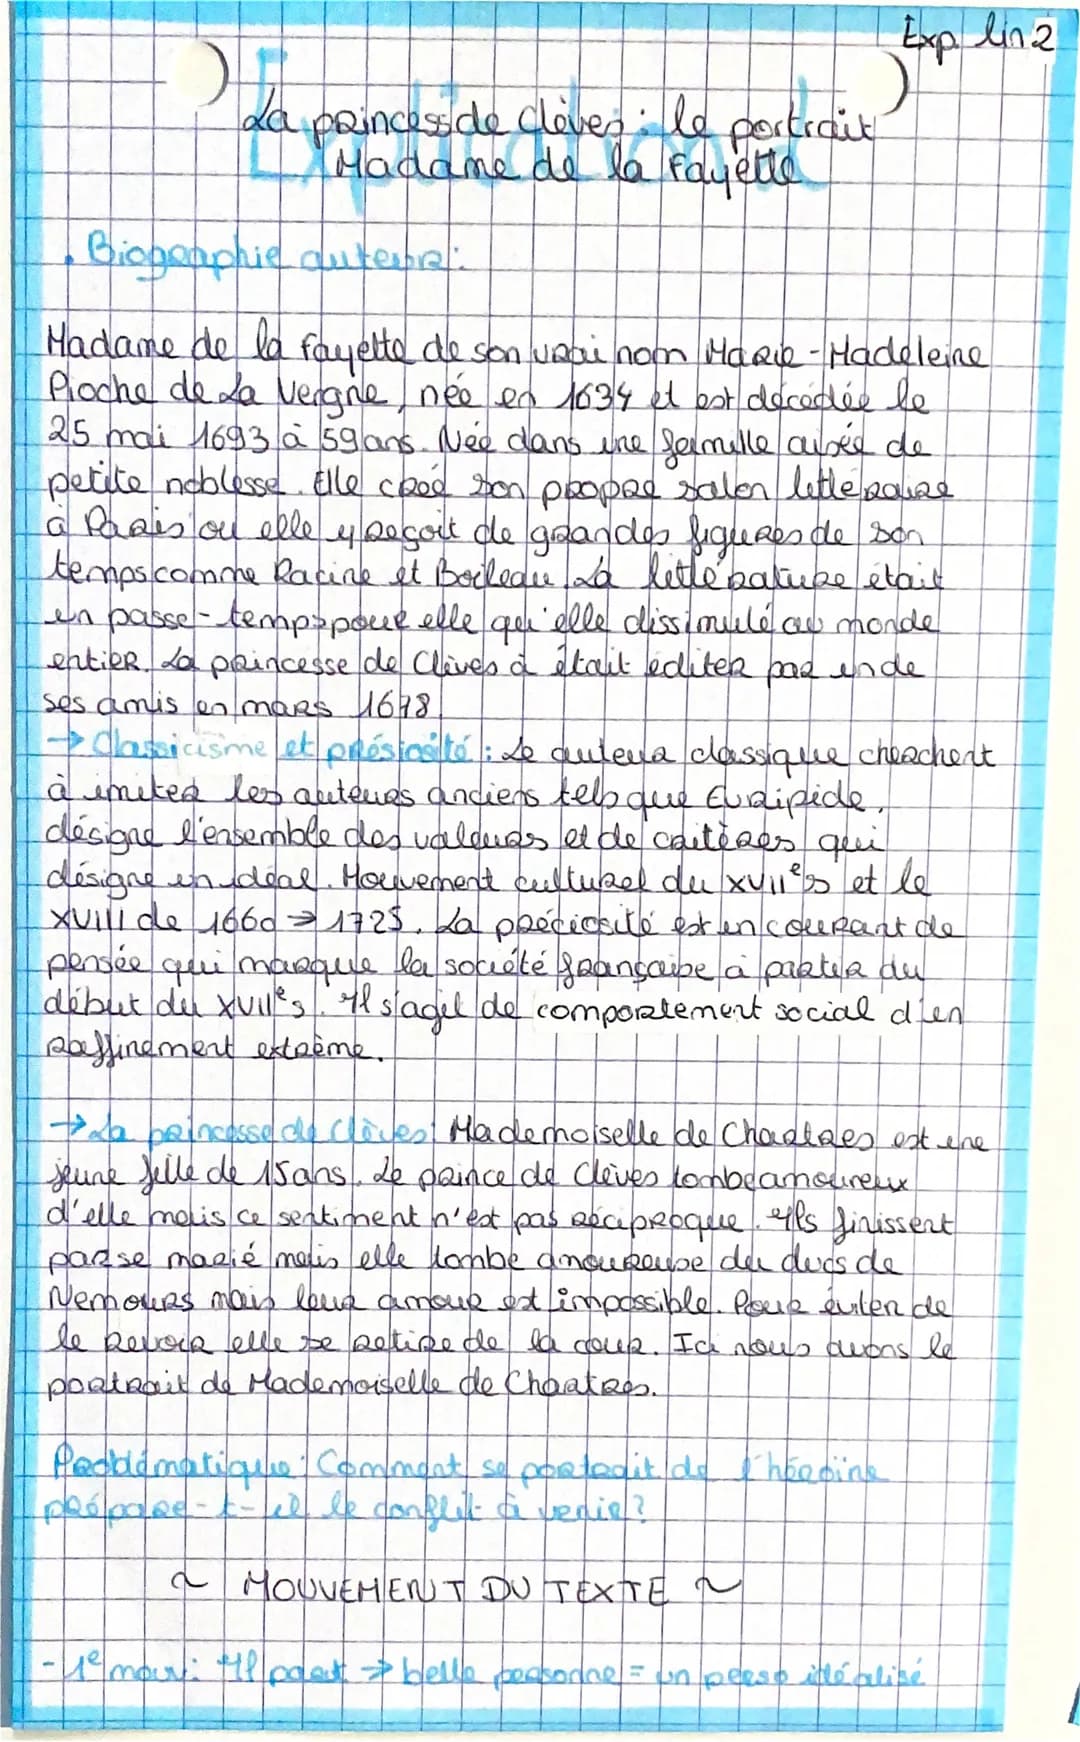 Exp. lin 2
Explication
La princesse de Clèves : le portrait
Madame de la Fayette
• Biographie auteur :
Madame de la Fayette de son vrai nom Marie-Madeleine
Pioche de La Vergne, née en 1634 et est décédée le
25 mai 1693 à 59 ans. Née dans une famille aisée de
petite noblesse. Elle créé son propre salon littéraire
à Paris ou elle y reçoit de grandes figures de son
temps comme Racine et Boileau. La littérature était
un passe-temps pour elle qu'elle dissimulé au monde
entier. La princesse de Clèves à était éditer par un de
ses amis en mars 1678
→ Classicisme et présiosité : Le auteur classique cherchent
à imiter les auteurs anciens tels que Euripide,
désigne l'ensemble des valeurs et de critères qui
désigne un idéal. Mouvement culturel du XVIIe s et le
XVIII de 1660 → 1725. La préciosité est un courant de
pensée qui marque la société française à partir du
début du XVIIe s. Il s'agit de comportement social d'un
raffinement extrême.
→ La princesse de Clèves : Mademoiselle de Chartres est une
jeune fille de 15 ans. Le prince de Clèves tombe amoureux
d'elle mais ce sentiment n'est pas réciproque. Ils finissent
par se marié mais elle tombe amoureuse du ducs de
Nemours mais leur amour est impossible. Pour éviter de
le revoir elle se retire de la cour. Ici nous avons le
portrait de Mademoiselle de Chartres.
Problématique : Comment se portrait de l'héroïne
prépare-t-il le conflit à venir ?
~ MOUVEMENT DU TEXTE ~
- 1e mouv : Il parut → belle personne = un perso idéalisé